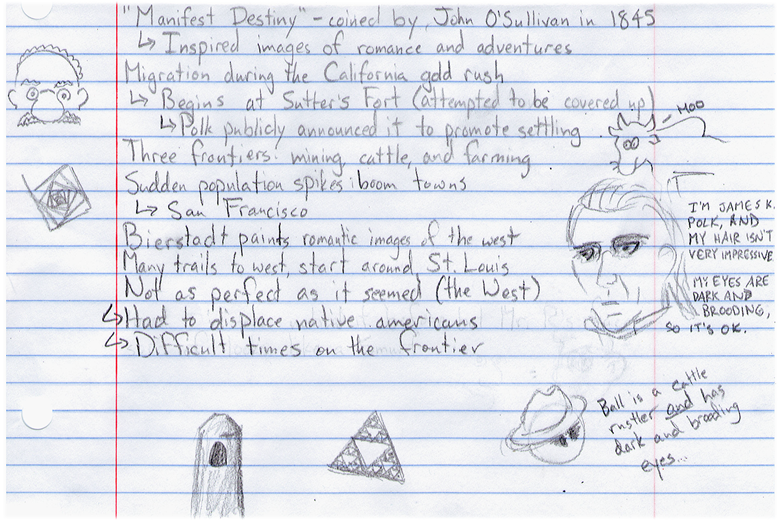 "Manifest Destiny" - coined by John O'Sullivan in 1845
↳ Inspired images of romance and adventures
Migration during the California gold rush
↳ Begins at Sutter's Fort (attempted to be covered up)
↳ Polk publicly announced it to promote settling
MOO
Three frontiers: mining, cattle, and farming
Sudden population spikes: boom towns
↳ San Francisco
Bierstadt paints romantic images of the west
Many trails to west, start around St. Louis
Not as perfect as it seemed (the West)
↳ Had to displace native americans
↳ Difficult times on the frontier
I'M JAMES K.
POLK, AND
MY HAIR ISN'T
VERY IMPRESSIVE
MY EYES ARE
DARK AND
BROODING,
SO IT'S OK.
Ball is a cattle
rustler and has
dark and brooding
eyes...